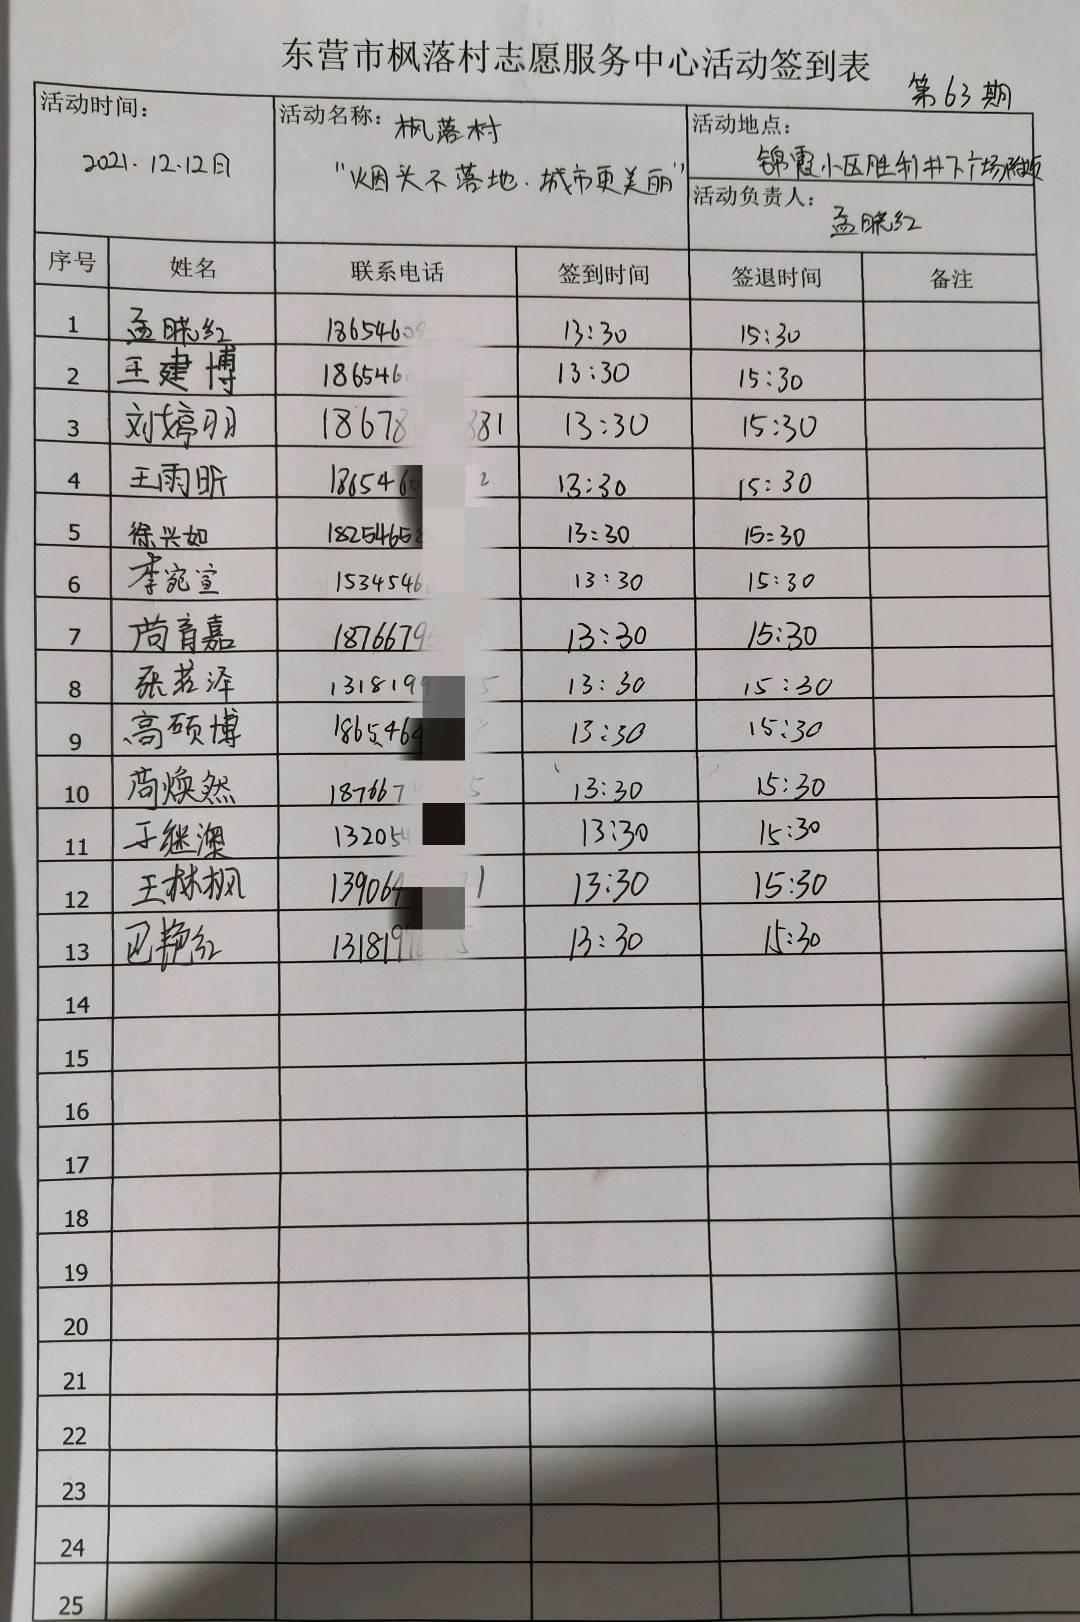 东营市枫落村志愿服务中心活动签到表
第63期
活动时间：
2021.12.12日
活动名称：枫落村
"烟头不落地.城市更美丽"
活动地点：
锦霞小区胜利井下广场
活动负责人：
孟晓红
序号 姓名 联系电话 签到时间 签退时间 备注
1 孟晓红 1865460 13:30 15:30
2 王建博 186546 13:30 15:30
3 刘婷羽 18678 881 13:30 15:30
4 王雨昕 1865460 2 13:30 15:30
5 徐兴如 18254658 13:30 15:30
6 李宛宣 1534546 13:30 15:30
7 尚育嘉 1876679 13:30 15:30
8 张若泽 131819 5 13:30 15:30
9 高硕博 186546 13:30 15:30
10 尚焕然 187667 5 13:30 15:30
11 于继澳 13205 13:30 15:30
12 王林枫 13906 1 13:30 15:30
13 巴艳红 131819 5 13:30 15:30
14
15
16
17
18
19
20
21
22
23
24
25